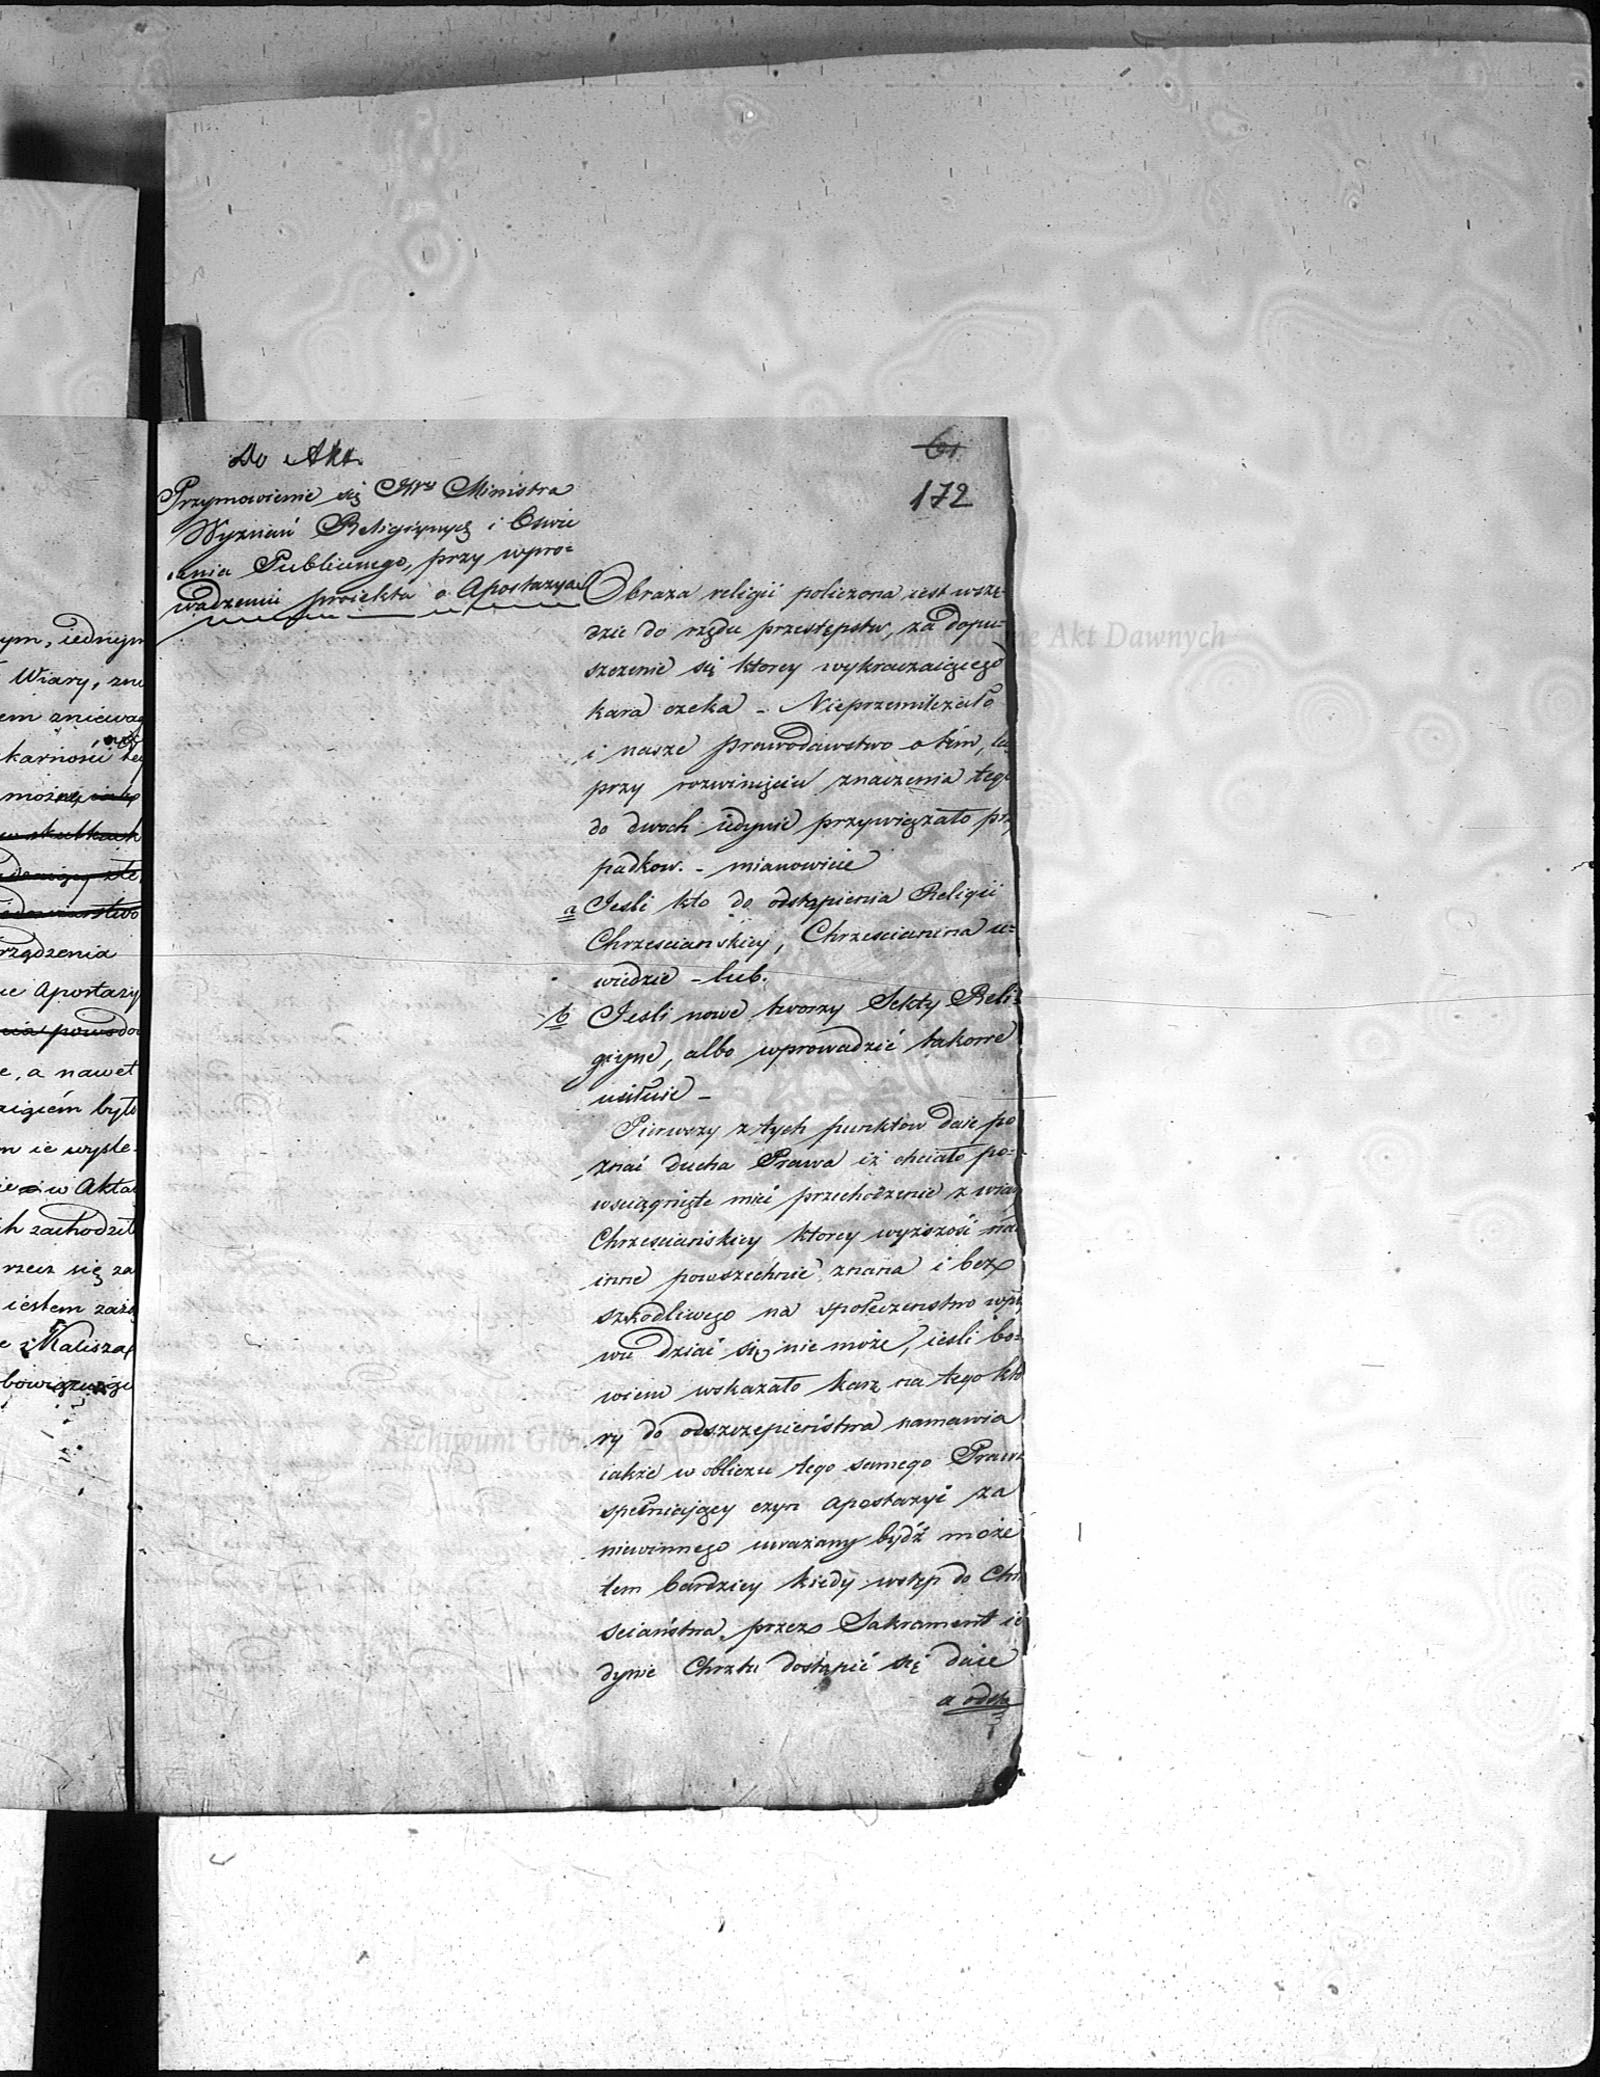 ym, iednym
Wiary, znie
em zniewag
karności tey
możny
w skutkach
rządzenia
ie Apostazy
e, a nawet
aigiem było
m ie wyśle-
w Aktа
h zachodzi
rzecz się za
iestem zażą
e z Kalisza
bowiązuie
Do Akt.
61
172
Przymowienie się JWgo Ministra
Wyznań Religiynych i Oswie
cenia Publicznego, przy wpro-
wadzeniu proiektu o Apostazyach
Obraza religii policzona iest wszę-
dzie do rzędu przestępstw, za dopu-
szczenie się ktorey wykraczaiącego
kara czeka - Nieprzemilczało
i nasze prawodawstwo o tém, lecz
przy rozwinięciu znaczenia tego
do dwoch iedynie przywiązało przy
padkow. - mianowicie
a Jesli kto do odstąpienia Religii
Chrzescianskiey, Chrzescianina u-
wiedzie - lub.
b Jesli nowe tworzy Sekty Reli-
giyne, albo wprowadzić takowe
usiłuie -
Pierwszy z tych punktow daie po
znać ducha Prawa iż chciało po-
wsciągnięte mieć przechodzenie z wiary
Chrzescianskiey ktorey wyższość nad
inne powszechnie znana i bez
szkodliwego na społeczenstwo wpły
wu dziać się nie może, iesli bo-
wiem wskazało karę na tego któ
ry do odszczepieństwa namawia
iakże w obliczu tego samego Prawa
spełniaiący czyn apostazyi za
niewinnego uważany bydź może
tem bardziey kiedy wstęp do Chrze
sciaństwa, przez Sakrament ie
dynie Chrztu dostąpić się daie
a odstą
Archiwum Główne Akt Dawnych
Archiwum Główne Akt Dawnych